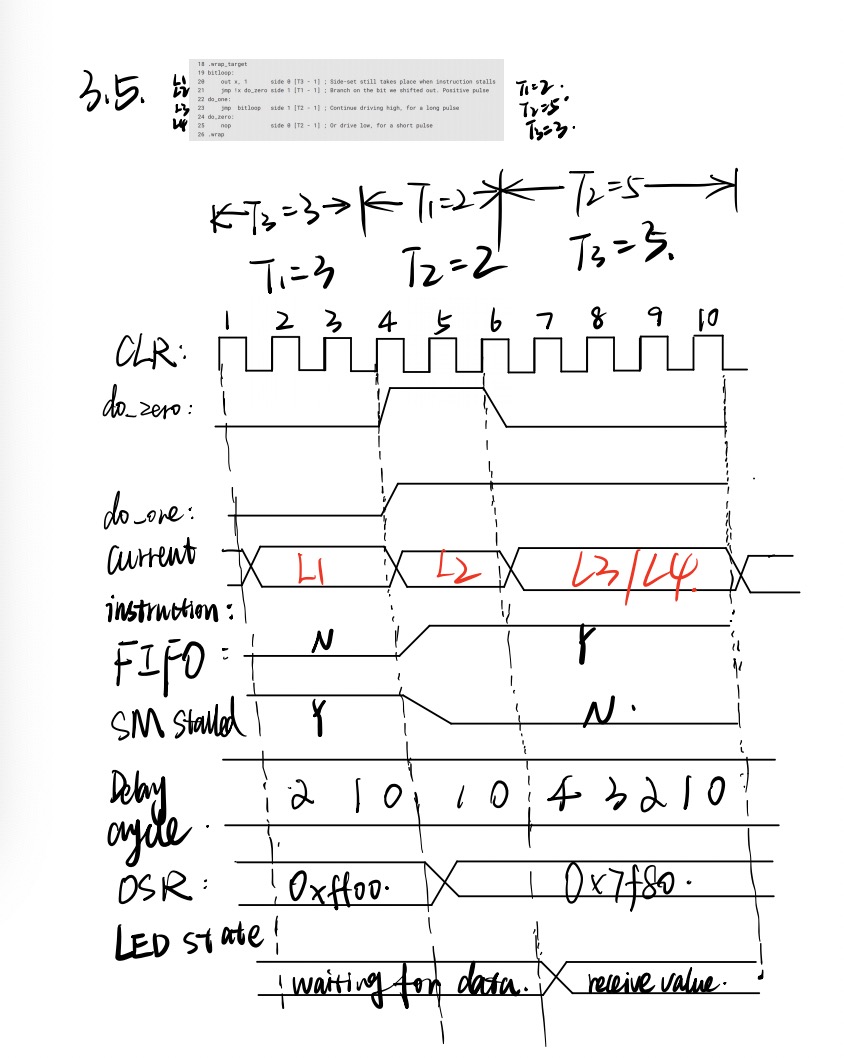 3.5.
L1
L2
L3
L4
18 .wrap_target
19 bitloop:
20 out x, 1 side 0 [T3 - 1] ; Side-set still takes place when instruction stalls
21 jmp !x do_zero side 1 [T1 - 1] ; Branch on the bit we shifted out. Positive pulse
22 do_one:
23 jmp bitloop side 1 [T2 - 1] ; Continue driving high, for a long pulse
24 do_zero:
25 nop side 0 [T2 - 1] ; Or drive low, for a short pulse
26 .wrap
T1=2.
T2=5.
T3=3.
T3=3 T1=2 T2=5
T1=3 T2=2 T3=5.
1 2 3 4 5 6 7 8 9 10
CLR:
do_zero:
do_one:
Current L1 L2 L3/L4.
instruction:
FIFO: N Y
SM stalled Y N.
Delay 2 1 0 1 0 4 3 2 1 0
cycle.
OSR: 0xff00. 0x7f80.
LED state
waiting for data. receive value.